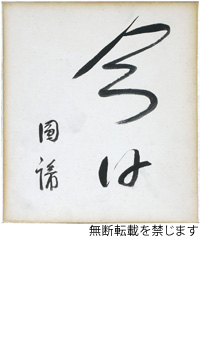 今日
圓諦
無断転載を禁じます